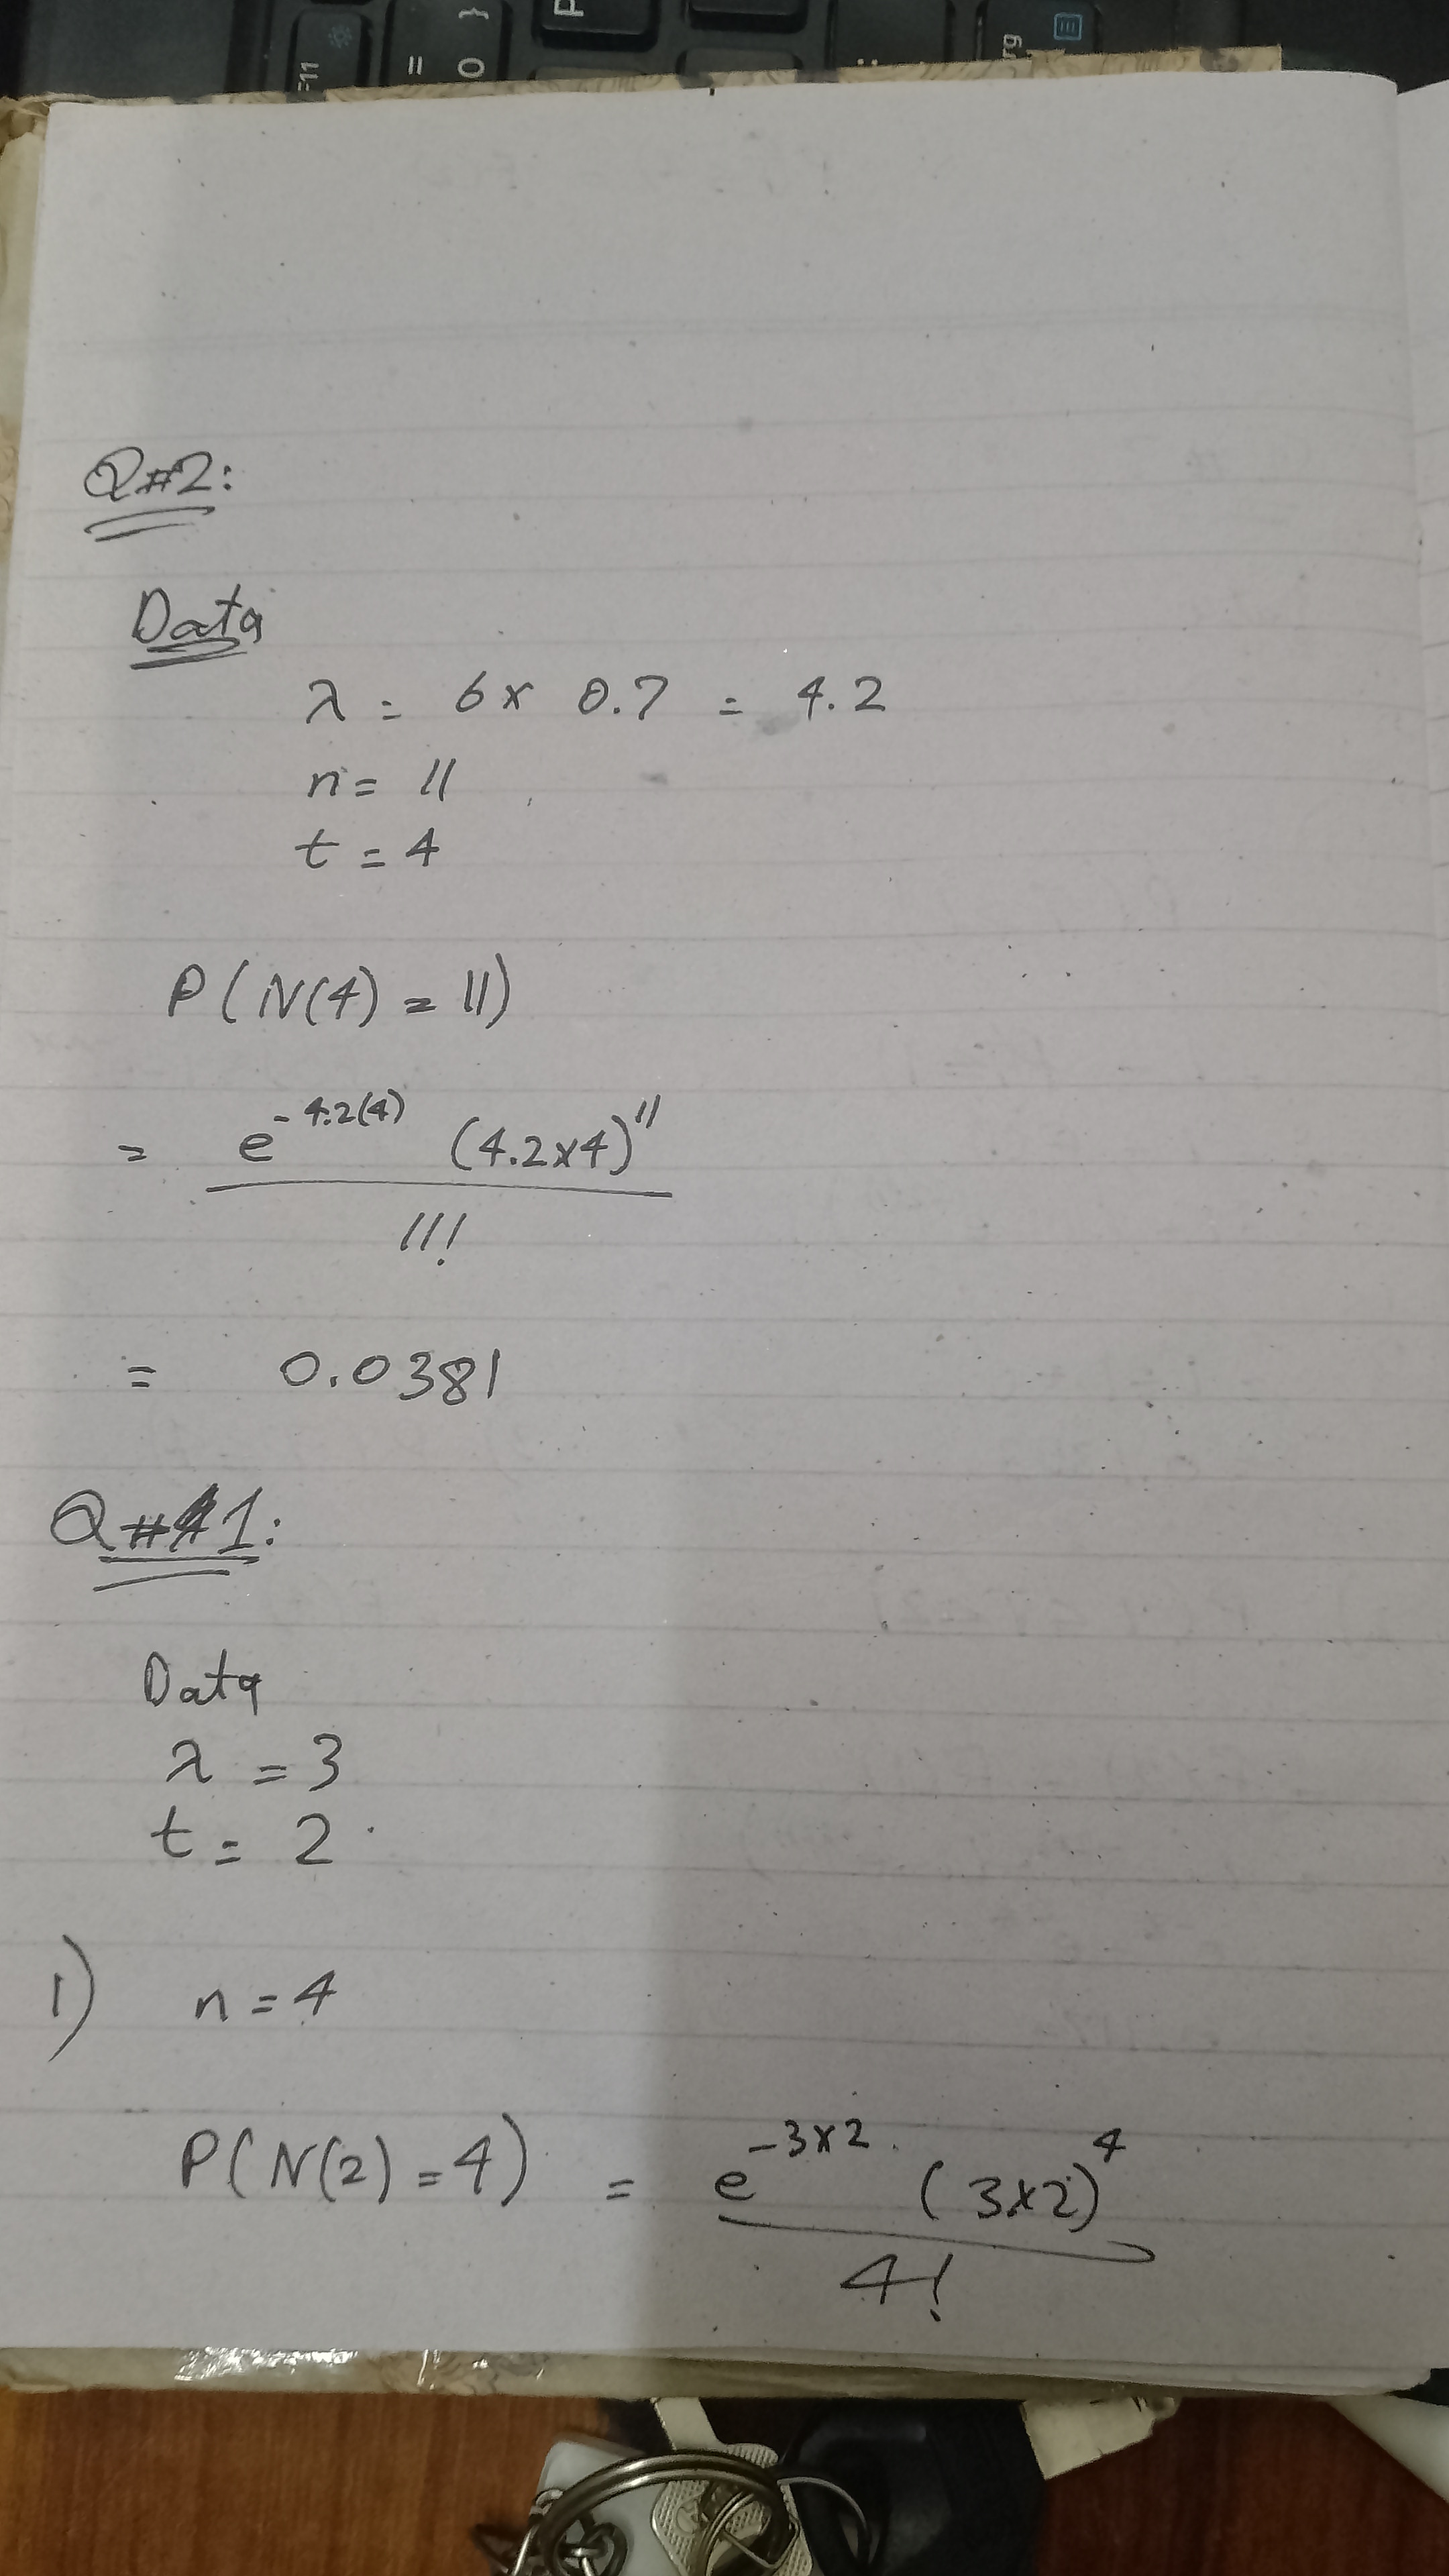 F11
=
}
0
P
:
rg
Q#2:
Data
λ = 6 x 0.7 = 4.2
n = 11
t = 4
P(N(4) = 11)
= e^-4.2(4) (4.2x4)^11
11!
= 0.0381
Q#1:
Data
λ = 3
t = 2
1) n = 4
P(N(2) = 4) = e^-3x2 (3x2)^4
4!